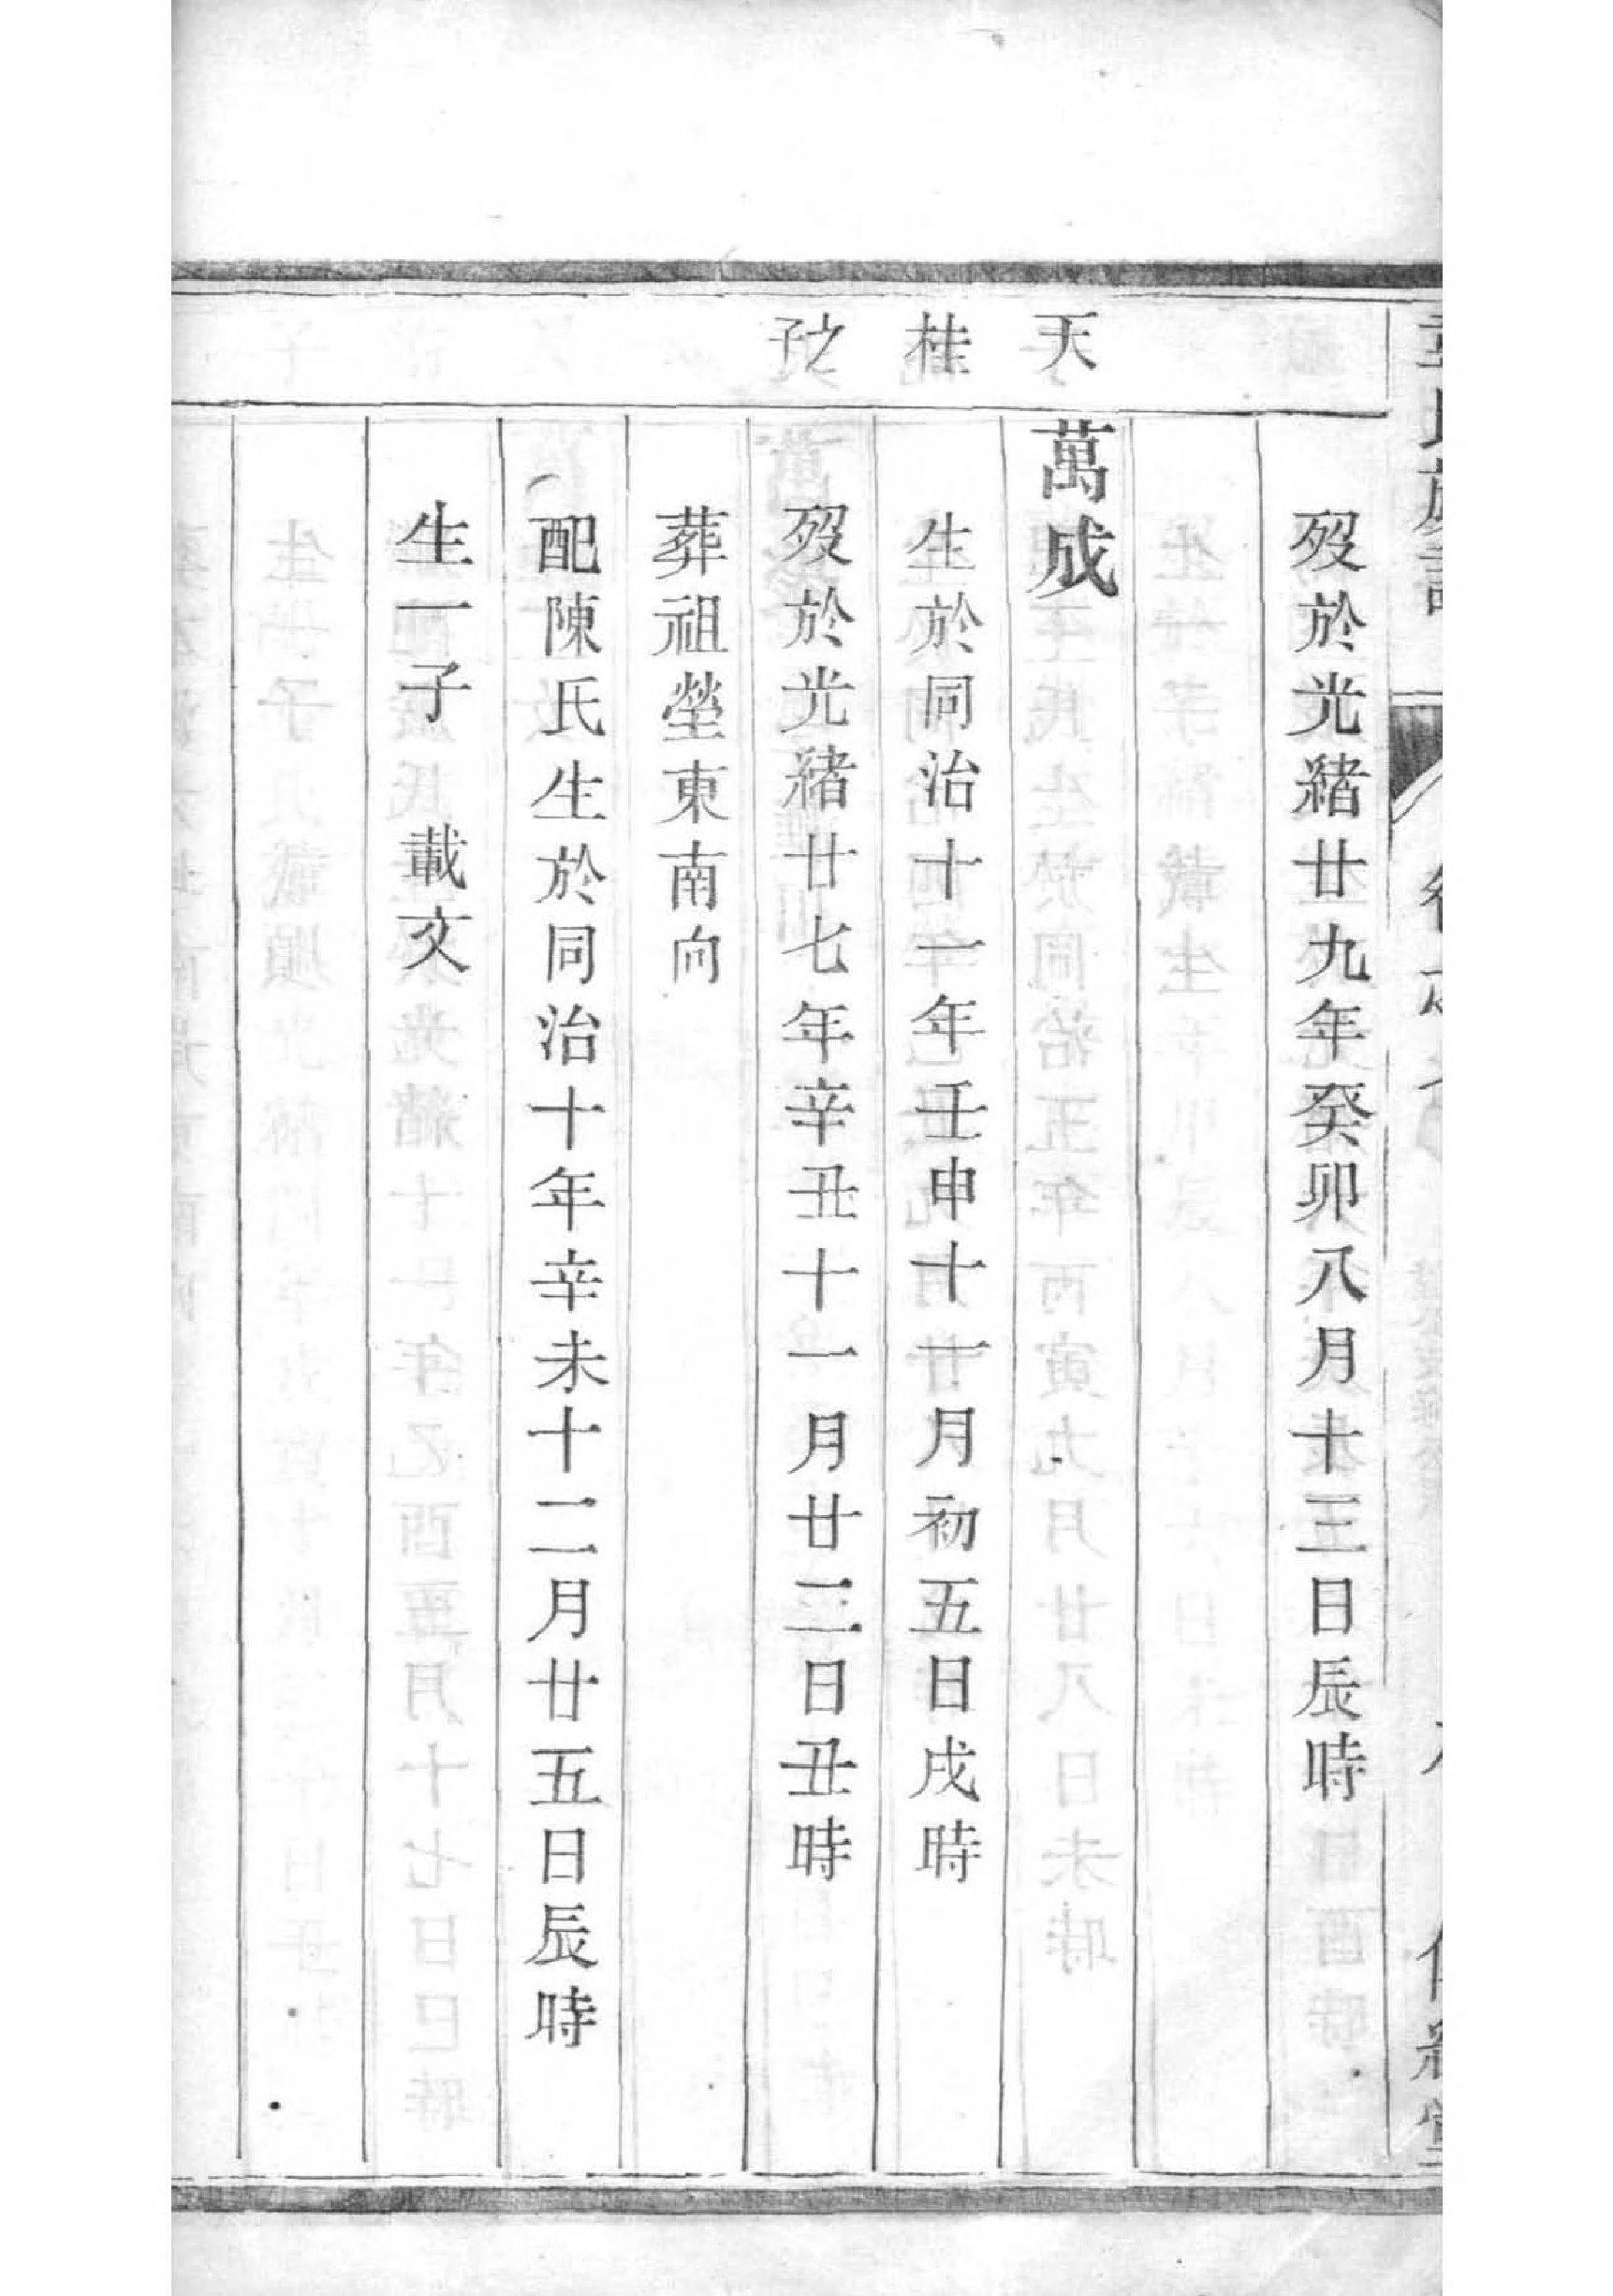 歿於光緒廿九年癸卯八月十三日辰時
天桂之子
萬成
生於同治十一年壬申十一月初五日戌時
歿於光緒廿七年辛丑十一月廿三日丑時
葬祖塋東南向
配陳氏生於同治十年辛未十二月廿五日辰時
生一子 載文